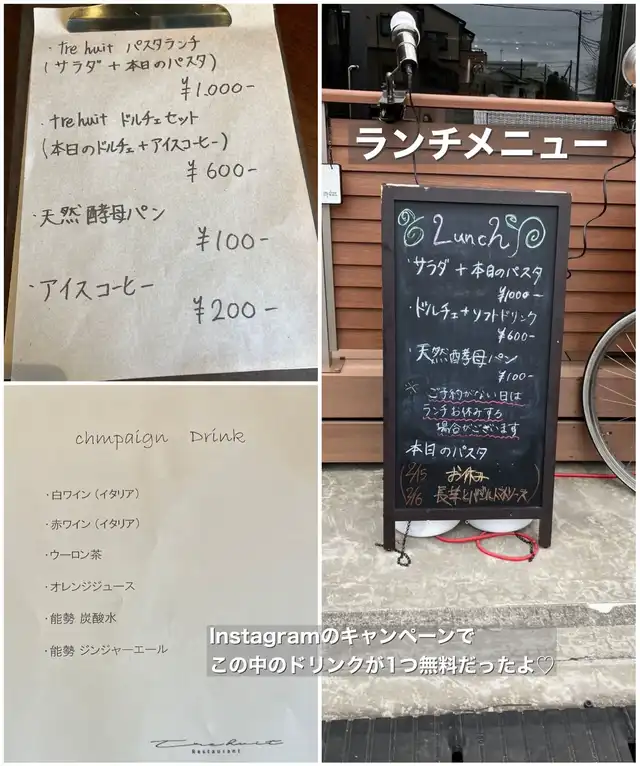 ・tre huit パスタランチ
(サラダ + 本日のパスタ)
¥1.000-
・tre huit ドルチェセット
(本日のドルチェ+アイスコーヒー)
¥600-
・天然酵母パン
¥100-
・アイスコーヒー
¥200-
ランチメニュー
Lunch
・サラダ + 本日のパスタ
¥1000-
・ドルチェ+ソフトドリンク
¥600-
・天然酵母パン
¥100-
※ご予約がない日は
ランチお休みする
場合がございます
本日のパスタ
2/15 お休み
chmpaign Drink
・白ワイン (イタリア)
・赤ワイン (イタリア)
・ウーロン茶
・オレンジジュース
・能勢 炭酸水
・能勢 ジンジャーエール
Instagramのキャンペーンで
この中のドリンクが1つ無料だったよ♡
Trehuit
Restaurant